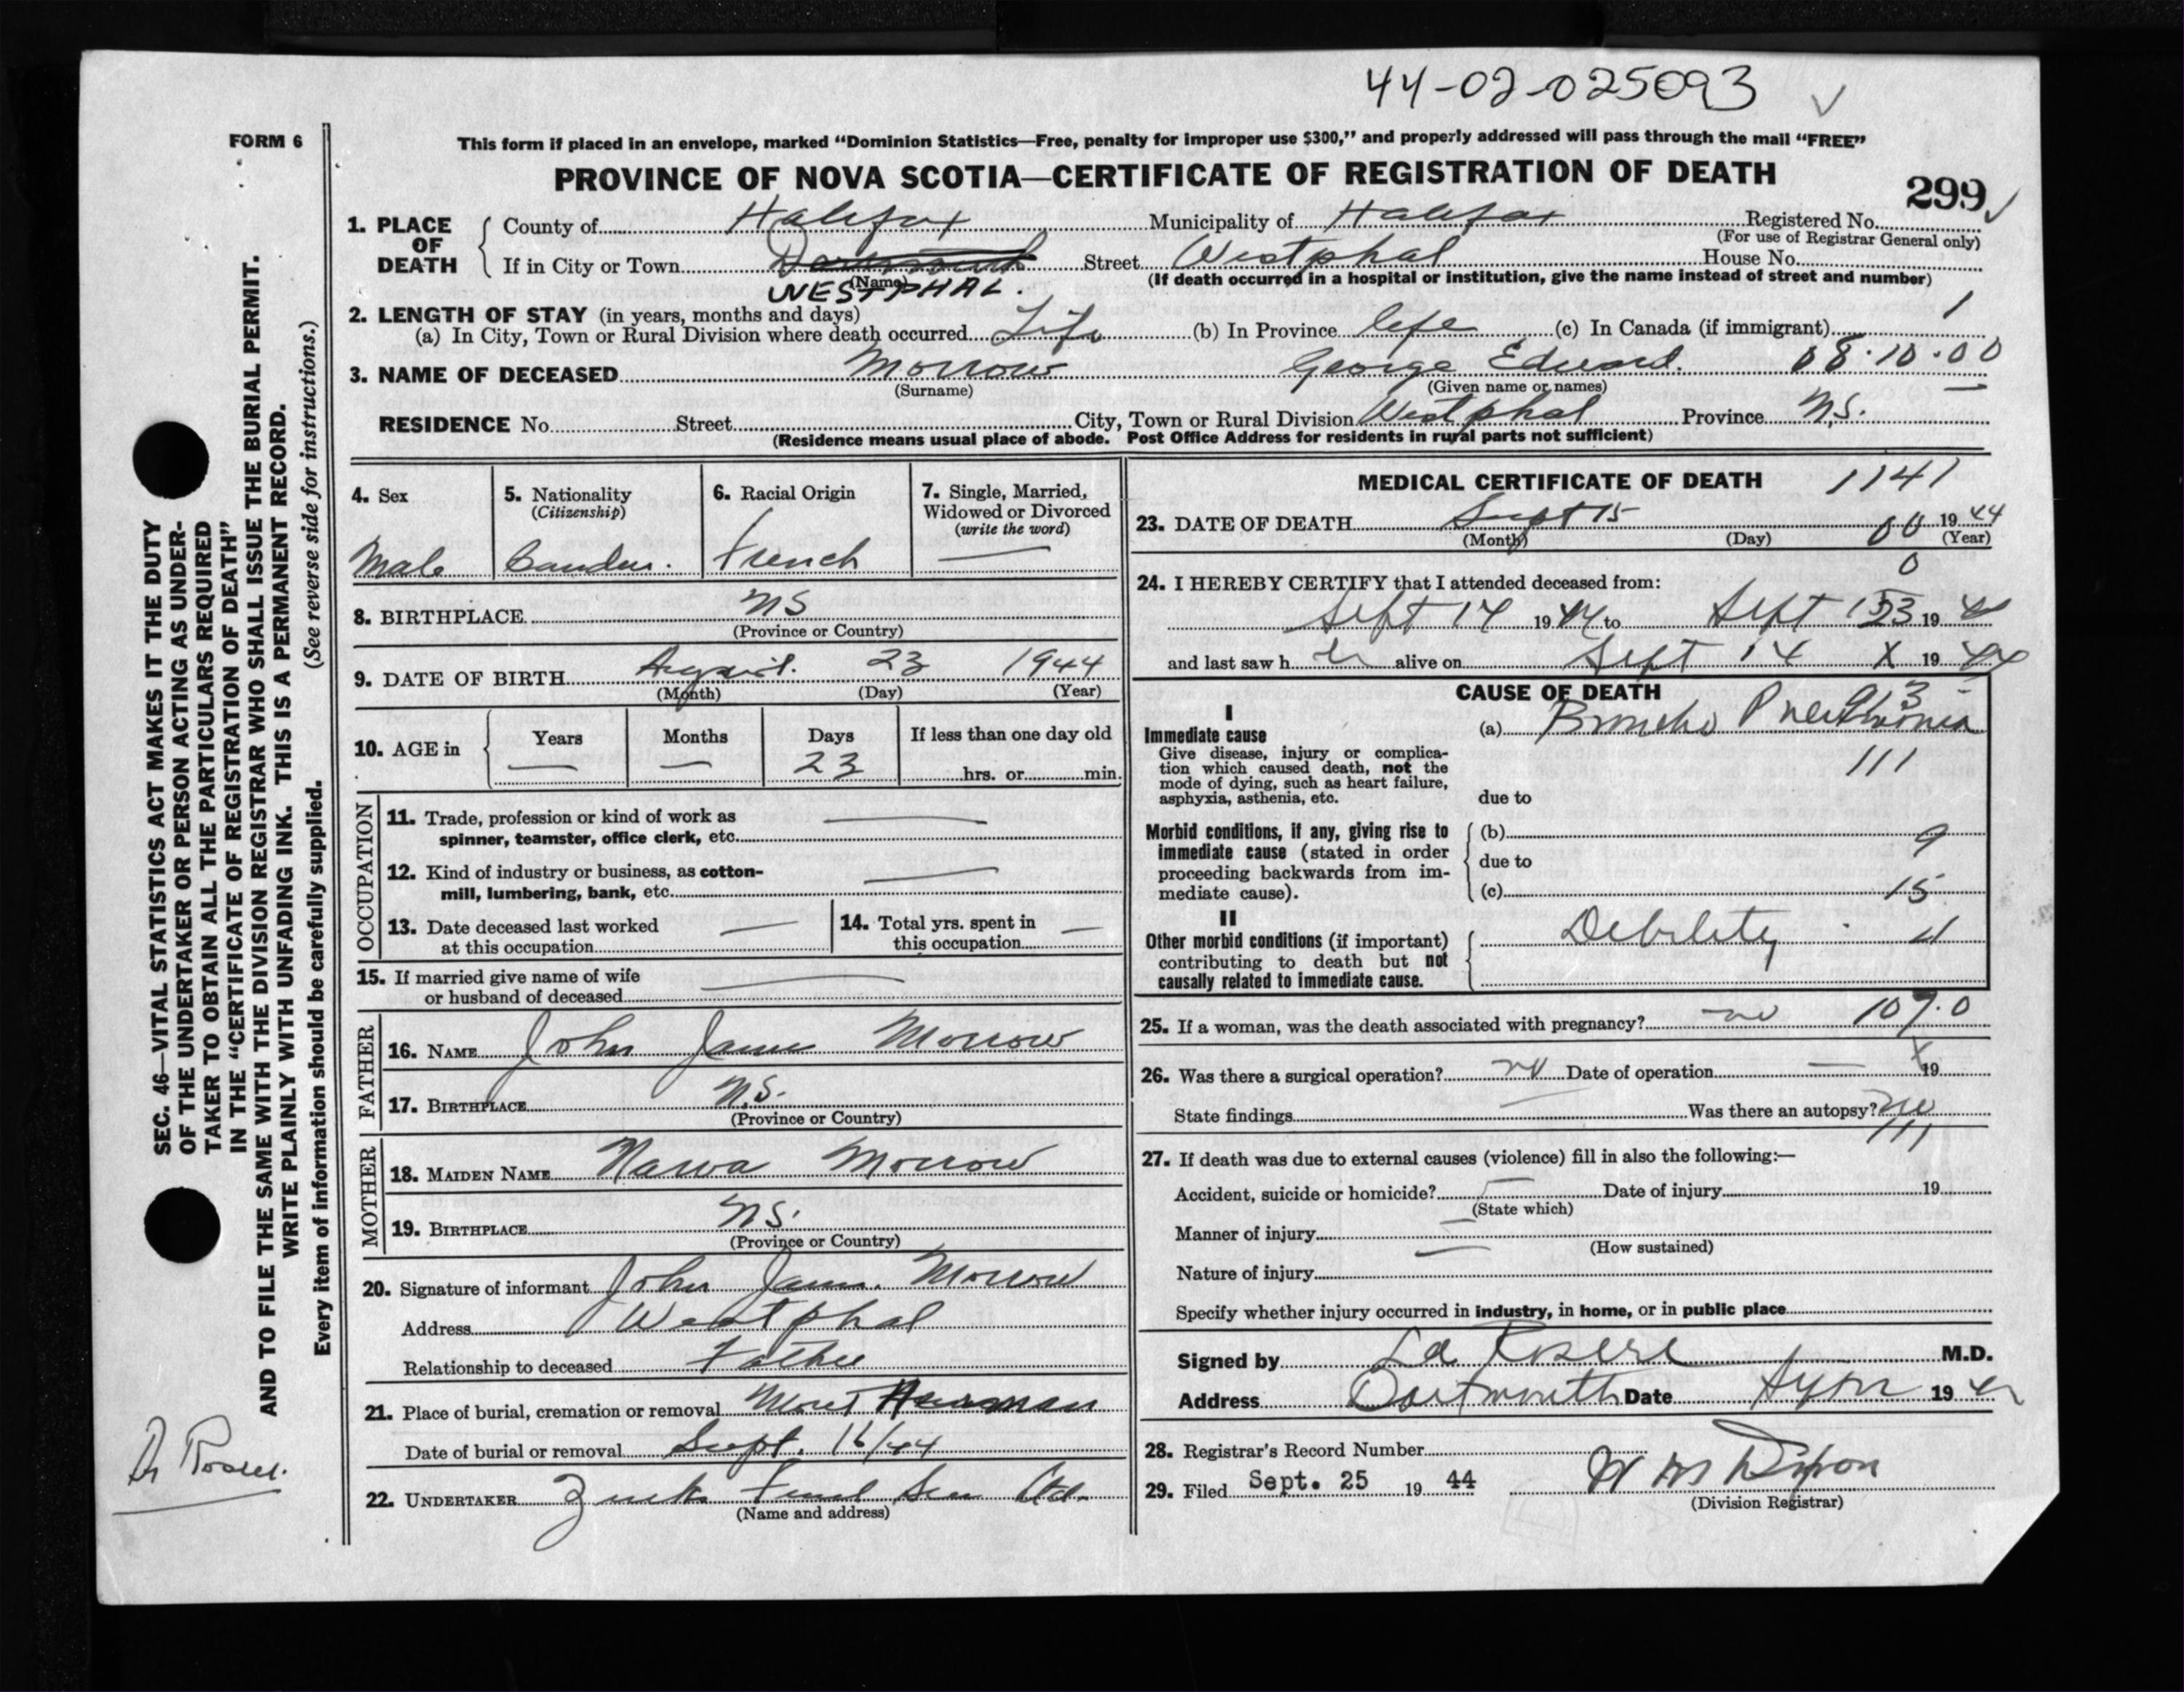 44-02-025093
FORM 6
This form if placed in an envelope, marked "Dominion Statistics—Free, penalty for improper use $300," and properly addressed will pass through the mail "FREE"
PROVINCE OF NOVA SCOTIA—CERTIFICATE OF REGISTRATION OF DEATH
299
1. PLACE OF DEATH
County of Halifax Municipality of Halifax Registered No.
(For use of Registrar General only)
If in City or Town Dartmouth Street Westphal House No.
(Name) (If death occurred in a hospital or institution, give the name instead of street and number)
WESTPHAL.
2. LENGTH OF STAY (in years, months and days)
(a) In City, Town or Rural Division where death occurred Life (b) In Province life (c) In Canada (if immigrant) 1
3. NAME OF DECEASED Morrow George Edward. 08.10.00
(Surname) (Given name or names)
RESIDENCE No. Street City, Town or Rural Division Westphal Province N.S.
(Residence means usual place of abode. Post Office Address for residents in rural parts not sufficient)
4. Sex
Male
5. Nationality
(Citizenship)
6. Racial Origin
French
7. Single, Married, Widowed or Divorced
(write the word)
—
8. BIRTHPLACE NS
(Province or Country)
9. DATE OF BIRTH August 23 1944
(Month) (Day) (Year)
10. AGE in
Years Months Days If less than one day old
— — 23 hrs. or min.
OCCUPATION
11. Trade, profession or kind of work as
spinner, teamster, office clerk, etc. —
12. Kind of industry or business, as cotton-
mill, lumbering, bank, etc. —
13. Date deceased last worked
at this occupation —
14. Total yrs. spent in
this occupation —
15. If married give name of wife
or husband of deceased —
FATHER
16. NAME John James Morrow
17. BIRTHPLACE N.S.
(Province or Country)
MOTHER
18. MAIDEN NAME Morrow
19. BIRTHPLACE NS.
(Province or Country)
20. Signature of informant John James Morrow
Address Westphal
Relationship to deceased Father
21. Place of burial, cremation or removal Mount Herman
Date of burial or removal Sept. 16/44
22. UNDERTAKER Ltd.
(Name and address)
MEDICAL CERTIFICATE OF DEATH 1141
23. DATE OF DEATH Sept 15 00 19 44
(Month) (Day) (Year)
0
24. I HEREBY CERTIFY that I attended deceased from:
Sept 14 19 44 to Sept 15 23 19 44
and last saw h alive on Sept 14 X 19 44
CAUSE OF DEATH
I
Immediate cause
Give disease, injury or complica-
tion which caused death, not the
mode of dying, such as heart failure,
asphyxia, asthenia, etc.
(a) Broncho Pneumonia
111
due to
Morbid conditions, if any, giving rise to
immediate cause (stated in order
proceeding backwards from im-
mediate cause).
(b) 9
due to
(c) 15
II
Other morbid conditions (if important)
contributing to death but not
causally related to immediate cause.
Debility
25. If a woman, was the death associated with pregnancy? no 107.0
26. Was there a surgical operation? no Date of operation — X 19
State findings — Was there an autopsy? no
111
27. If death was due to external causes (violence) fill in also the following:—
Accident, suicide or homicide? — Date of injury 19
(State which)
Manner of injury —
(How sustained)
Nature of injury
Specify whether injury occurred in industry, in home, or in public place
Signed by M.D.
Address Dartmouth Date 19 44
28. Registrar's Record Number
29. Filed Sept. 25 19 44 W M Dixon
(Division Registrar)
SEC. 46—VITAL STATISTICS ACT MAKES IT THE DUTY
OF THE UNDERTAKER OR PERSON ACTING AS UNDER-
TAKER TO OBTAIN ALL THE PARTICULARS REQUIRED
IN THE "CERTIFICATE OF REGISTRATION OF DEATH"
AND TO FILE THE SAME WITH THE DIVISION REGISTRAR WHO SHALL ISSUE THE BURIAL PERMIT.
WRITE PLAINLY WITH UNFADING INK. THIS IS A PERMANENT RECORD.
Every item of information should be carefully supplied. (See reverse side for instructions.)